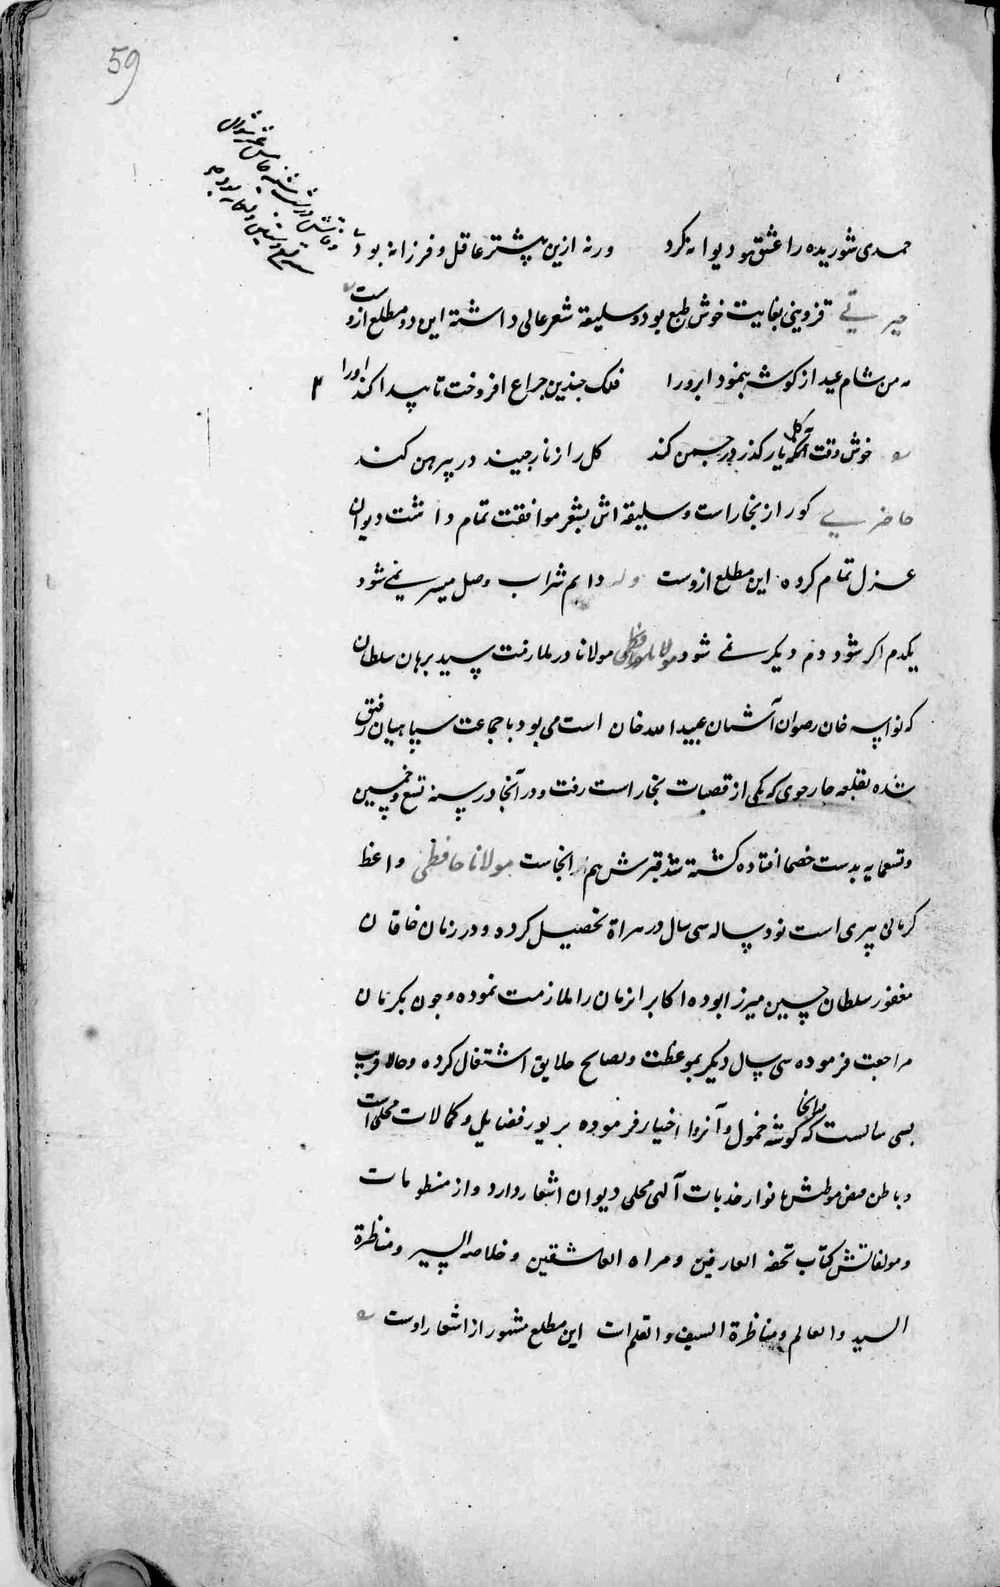 59
حمدی شوریده را عشق تو دیوانه کرد ورنه ازین پیشتر عاقل و فرزانه بود
حیرتی قزوینی بغایت خوش طبع بود و سلیقه شعر عالی داشته این دو مطلع ازوست
مه من شام عید از کوشه بنمود ابرو را فلک جندین جراع افروخت تا پیدا کند او را
خوش وقت آنکه یار کذر در جمن کند کل را ز ناز جیند در پیرهن کند
حاضری کور از بخاراست و سلیقه اش بشعر موافقت تمام داشت دیوان
غزل تمام کرده این مطلع ازوست وله دایم شراب وصل میسر نمی شود
یکدم اکر شود دم دیکر نمی شود مولانا در ملازمت سید برهان سلطان
که نواسه خان رضوان آشیان عبید الله خان است می بود با جماعت سپاهیان رفیق
شده بقلعه جارجوی که یکی از قصبات بخاراست رفت و در آنجا در سنه تسع و خمسین
و تسعمایه بدست خصما افتاده کشته شد قبرش هم انجاست مولانا حافظی واعظ
کرمانی پیری است نود ساله سی سال در هراة تحصیل کرده و در زمان خاقان
مغفور سلطان حسین میرزا بوده اکابر انزمان را ملازمت نموده و جون بکرمان
مراجعت فرموده سی سال دیکر بموعظت و نصایح خلایق اشتغال کرده و حالا قریب
بسی سالست که کوشه خمول و آنزوا اختیار فرموده بزیور فضایل و کمالات محلی است
و باطن بانوار جذبات آلهی محلی دیوان اشعار دارد و از منظومات
و مولفاتش کتاب تحفه العارفین و مراه العاشقین و خلاصه السیر و مناظرة
السید والعالم و مناظرة السیف و القلم است این مطلع مشهور از اشعار اوست